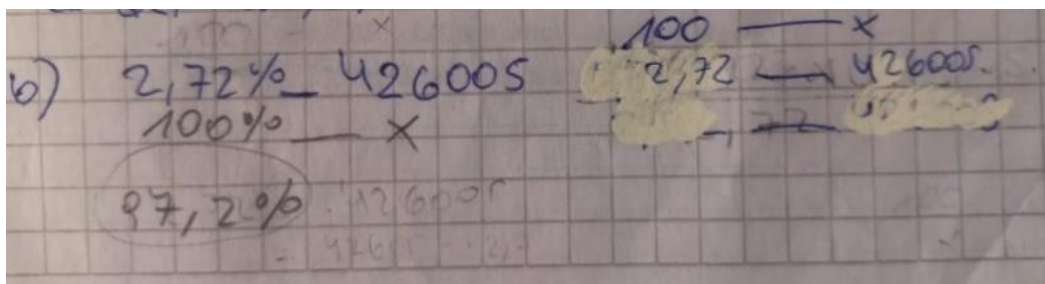 b) 2,72% — 426005
100% — x
97,2%
100 — x
2,72 — 426005.